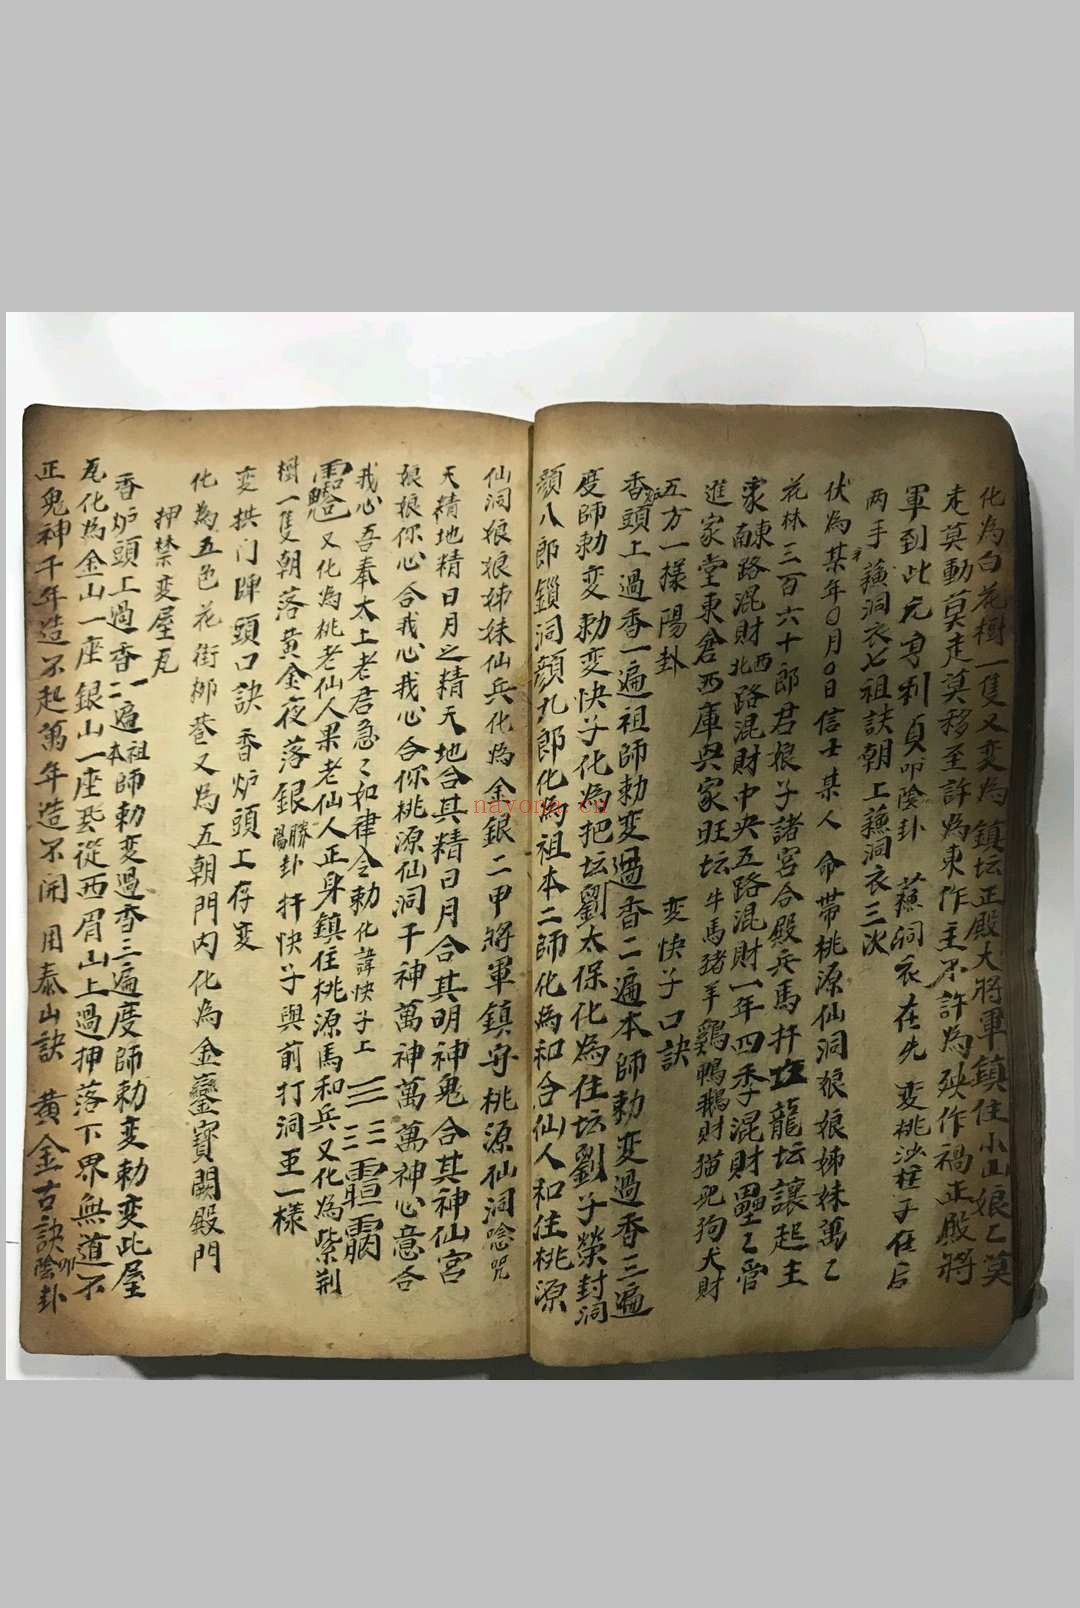 化為白花樹一隻又变為鎮坛正殿大將軍鎮住小山娘〻莫
走莫動莫走莫移至許為東作主不許為殃作禍正殿將
軍到此元亨利貞叩陰卦 蘓洞衣在先 变桃沙柱子在后
两手蘓洞衣七祖訣朝上蘓洞衣三次
伏為某年0月0日信士某人 命帶桃源仙洞娘娘姊妹萬〻
花林三百六十郎君根子諸宮合殿兵馬扞在龍坛讓起主
家東南路混財西北路混財中央五路混財一年四季混財壘〻管
進家堂東倉西庫與家旺坛牛馬猪羊鷄鴨鵝財猫児狗犬財
五方一樣陽卦 变快子口訣
香炉頭上過香一遍祖師勅变過香二遍本師勅变過香三遍
度師勅变勅变快子化為把坛劉太保化為住坛劉子榮封洞
顔八郎鎖洞顔九郎化為祖本二師化為和合仙人和住桃源
仙洞娘娘姊妹仙兵化為金銀二甲將軍鎮守桃源仙洞唸咒
天精地精日月之精天地合其精日月合其明神鬼合其神仙宮
娘娘你心合我心我心合你桃源仙洞千神萬神萬萬神心意合
我心吾奉太上老君急〻如律令勅化諱快子上
又化為桃老仙人果老仙人正身鎮住桃源馬和兵又化為紫荆
樹一隻朝落黄金夜落銀勝陽卦扞快子與前打洞亜一樣
变拱门陣頭口訣香炉頭上存变
化為五色花街柳巷又為五朝門内化為金鑾寳闕殿門
押禁变屋瓦
香炉頭上過香一二遍祖本師勅变過香三遍度師勅变勅变此屋
瓦化為金山一座銀山一座飛從西眉山上過押落下界無道不
正鬼神千年造不起萬年造不開 用泰山訣 黄金古訣叩陰卦
nayona.cn